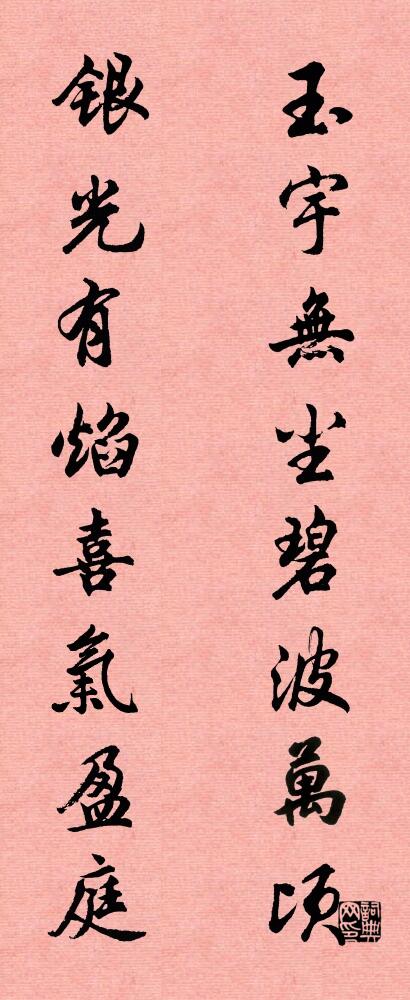 玉宇無尘碧波萬頃
銀光有焰喜氣盈庭
詞典网印